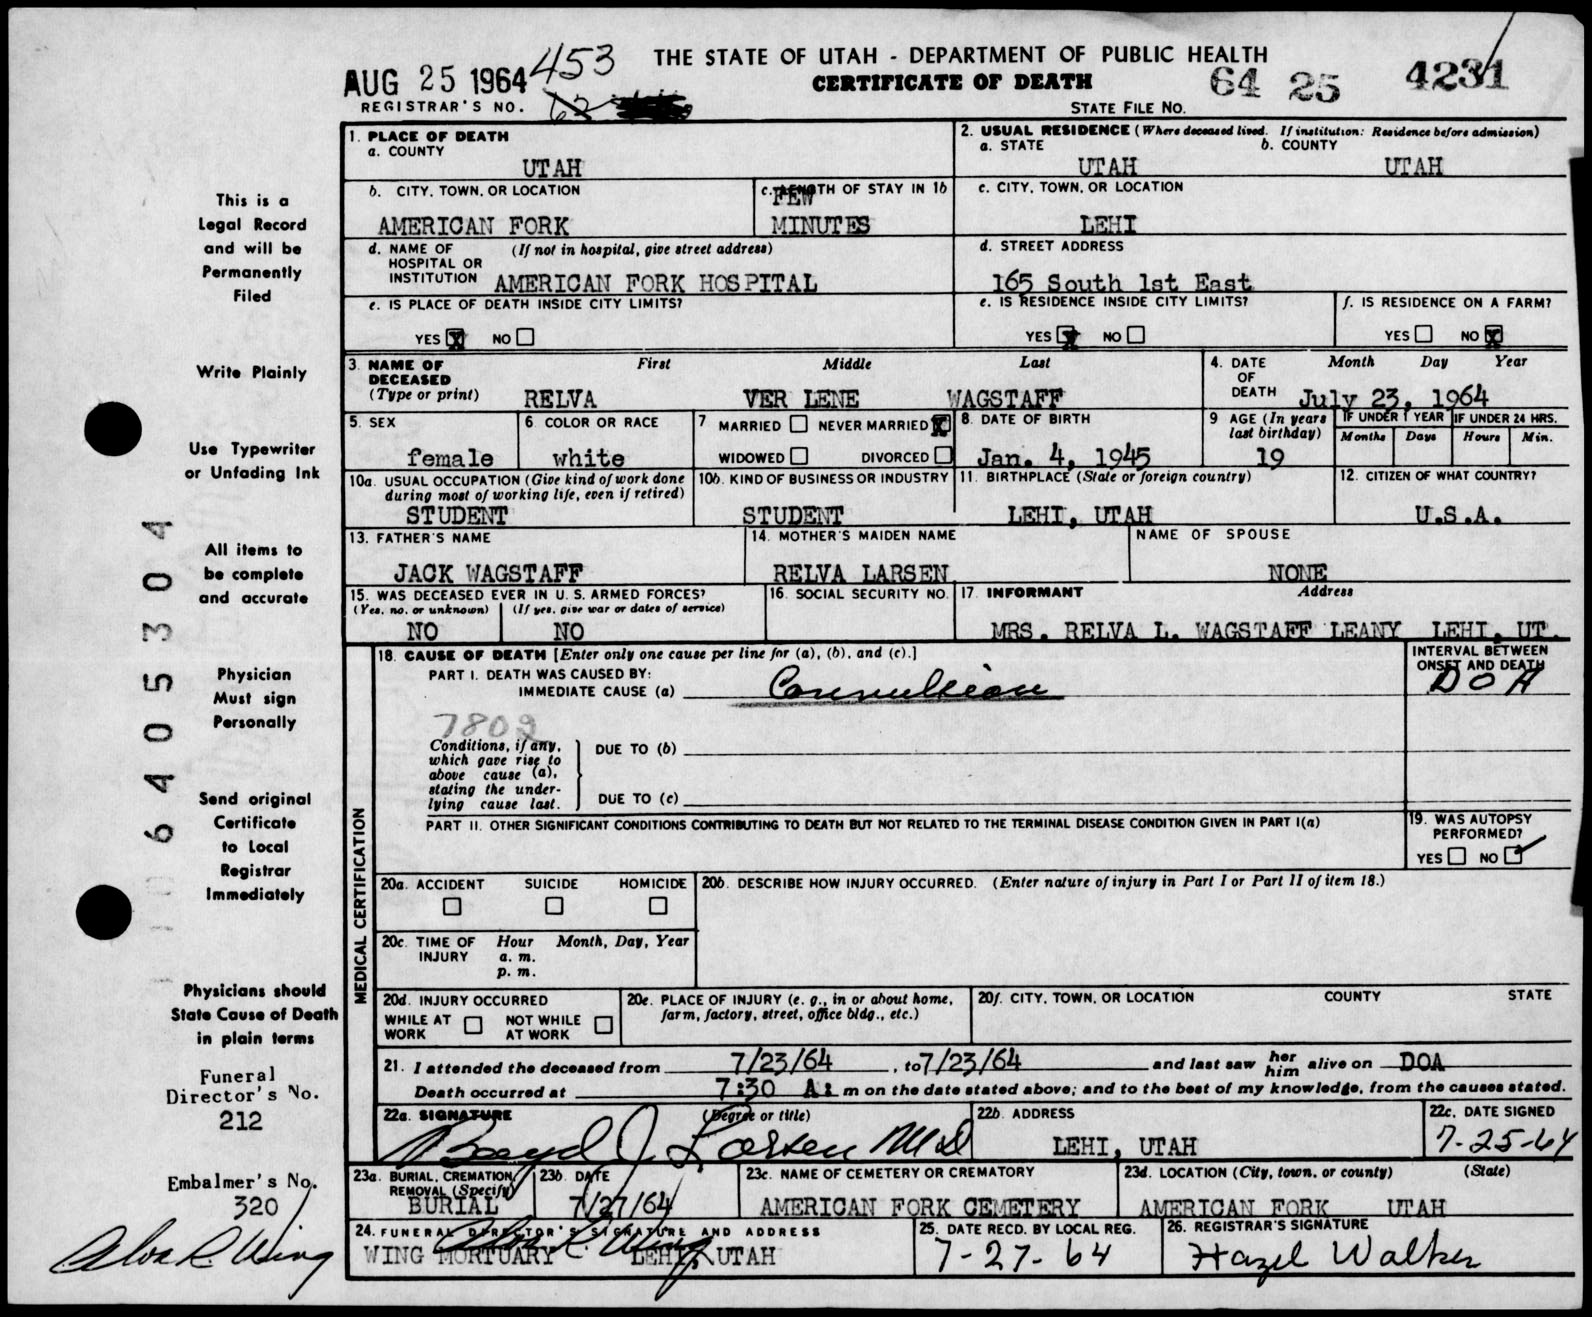 THE STATE OF UTAH - DEPARTMENT OF PUBLIC HEALTH
CERTIFICATE OF DEATH
AUG 25 1964 453
REGISTRAR'S NO. 62
STATE FILE NO. 64 25 4231
This is a
Legal Record
and will be
Permanently
Filed
Write Plainly
Use Typewriter
or Unfading Ink
All items to
be complete
and accurate
Physician
Must sign
Personally
Send original
Certificate
to Local
Registrar
Immediately
Physicians should
State Cause of Death
in plain terms
Funeral
Director's No.
212
Embalmer's No.
320
Alva R Wing
6405304
1. PLACE OF DEATH
a. COUNTY
UTAH
2. USUAL RESIDENCE (Where deceased lived. If institution: Residence before admission)
a. STATE b. COUNTY
UTAH UTAH
b. CITY, TOWN, OR LOCATION
AMERICAN FORK
c. LENGTH OF STAY IN 1b
FEW
MINUTES
c. CITY, TOWN, OR LOCATION
LEHI
d. NAME OF (If not in hospital, give street address)
HOSPITAL OR
INSTITUTION AMERICAN FORK HOSPITAL
d. STREET ADDRESS
165 South 1st East
e. IS PLACE OF DEATH INSIDE CITY LIMITS?
YES X NO
e. IS RESIDENCE INSIDE CITY LIMITS?
YES X NO
f. IS RESIDENCE ON A FARM?
YES NO X
3. NAME OF First Middle Last
DECEASED
(Type or print) RELVA VER LENE WAGSTAFF
4. DATE Month Day Year
OF
DEATH July 23, 1964
5. SEX
female
6. COLOR OR RACE
white
7 MARRIED NEVER MARRIED X
WIDOWED DIVORCED
8. DATE OF BIRTH
Jan. 4, 1945
9 AGE (In years
last birthday)
19
IF UNDER 1 YEAR IF UNDER 24 HRS.
Months Days Hours Min.
10a. USUAL OCCUPATION (Give kind of work done
during most of working life, even if retired)
STUDENT
10b. KIND OF BUSINESS OR INDUSTRY
STUDENT
11. BIRTHPLACE (State or foreign country)
LEHI, UTAH
12. CITIZEN OF WHAT COUNTRY?
U.S.A.
13. FATHER'S NAME
JACK WAGSTAFF
14. MOTHER'S MAIDEN NAME
RELVA LARSEN
NAME OF SPOUSE
NONE
15. WAS DECEASED EVER IN U. S. ARMED FORCES?
(Yes, no, or unknown) (If yes, give war or dates of service)
NO NO
16. SOCIAL SECURITY NO.
17. INFORMANT Address
MRS. RELVA L. WAGSTAFF LEANY LEHI, UT.
18. CAUSE OF DEATH [Enter only one cause per line for (a), (b), and (c).]
PART I. DEATH WAS CAUSED BY:
IMMEDIATE CAUSE (a) Convulsion
INTERVAL BETWEEN
ONSET AND DEATH
DOA
7802
Conditions, if any,
which gave rise to
above cause (a),
stating the under-
lying cause last.
DUE TO (b)
DUE TO (c)
PART II. OTHER SIGNIFICANT CONDITIONS CONTRIBUTING TO DEATH BUT NOT RELATED TO THE TERMINAL DISEASE CONDITION GIVEN IN PART I(a)
19. WAS AUTOPSY
PERFORMED?
YES NO ✓
MEDICAL CERTIFICATION
20a. ACCIDENT SUICIDE HOMICIDE
20b. DESCRIBE HOW INJURY OCCURRED. (Enter nature of injury in Part I or Part II of item 18.)
20c. TIME OF Hour Month, Day, Year
INJURY a. m.
p. m.
20d. INJURY OCCURRED
WHILE AT NOT WHILE
WORK AT WORK
20e. PLACE OF INJURY (e. g., in or about home,
farm, factory, street, office bldg., etc.)
20f. CITY, TOWN, OR LOCATION COUNTY STATE
21. I attended the deceased from 7/23/64, to 7/23/64 and last saw her him alive on DOA
Death occurred at 7:30 A: m on the date stated above; and to the best of my knowledge, from the causes stated.
22a. SIGNATURE (Degree or title)
Boyd J Larsen MD
22b. ADDRESS
LEHI, UTAH
22c. DATE SIGNED
7-25-64
23a. BURIAL, CREMATION,
REMOVAL (Specify)
BURIAL
23b. DATE
7/27/64
23c. NAME OF CEMETERY OR CREMATORY
AMERICAN FORK CEMETERY
23d. LOCATION (City, town, or county) (State)
AMERICAN FORK UTAH
24. FUNERAL DIRECTOR'S SIGNATURE AND ADDRESS
Alva R. Wing
WING MORTUARY LEHI, UTAH
25. DATE RECD. BY LOCAL REG.
7-27-64
26. REGISTRAR'S SIGNATURE
Hazel Walker